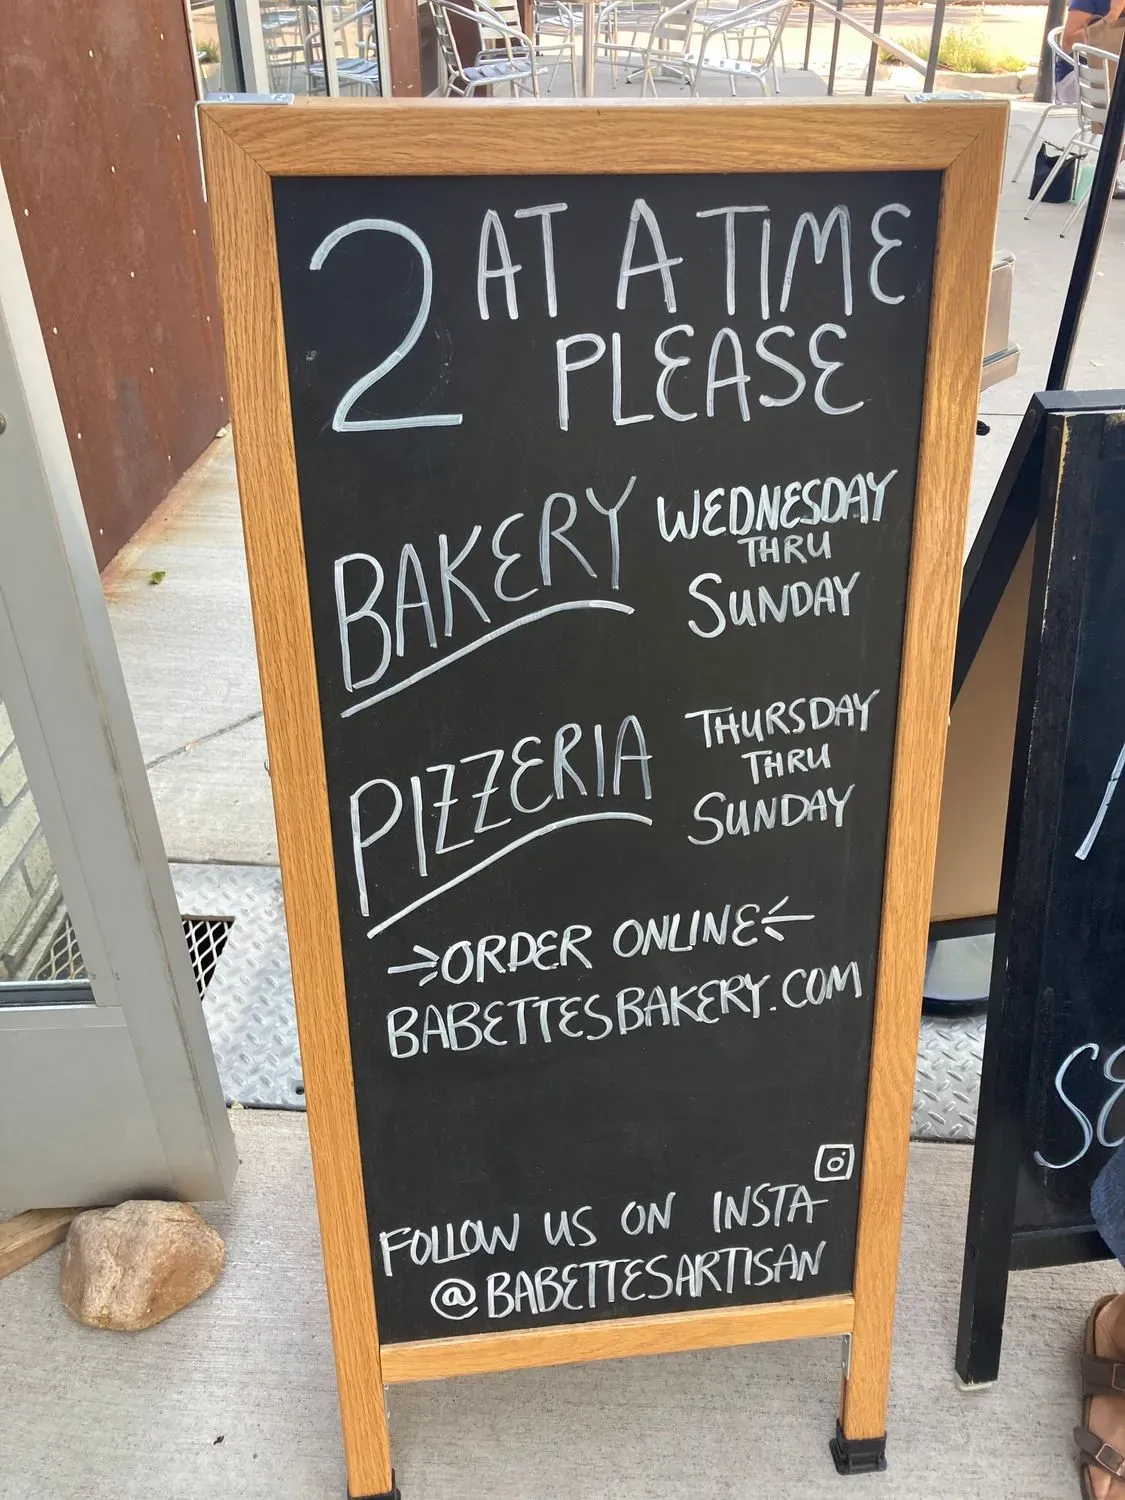 2 AT A TIME
PLEASE
BAKERY
WEDNESDAY
THRU
SUNDAY
PIZZERIA
THURSDAY
THRU
SUNDAY
ORDER ONLINE
BABETTESBAKERY.COM
FOLLOW US ON INSTA
@BABETTESARTISAN